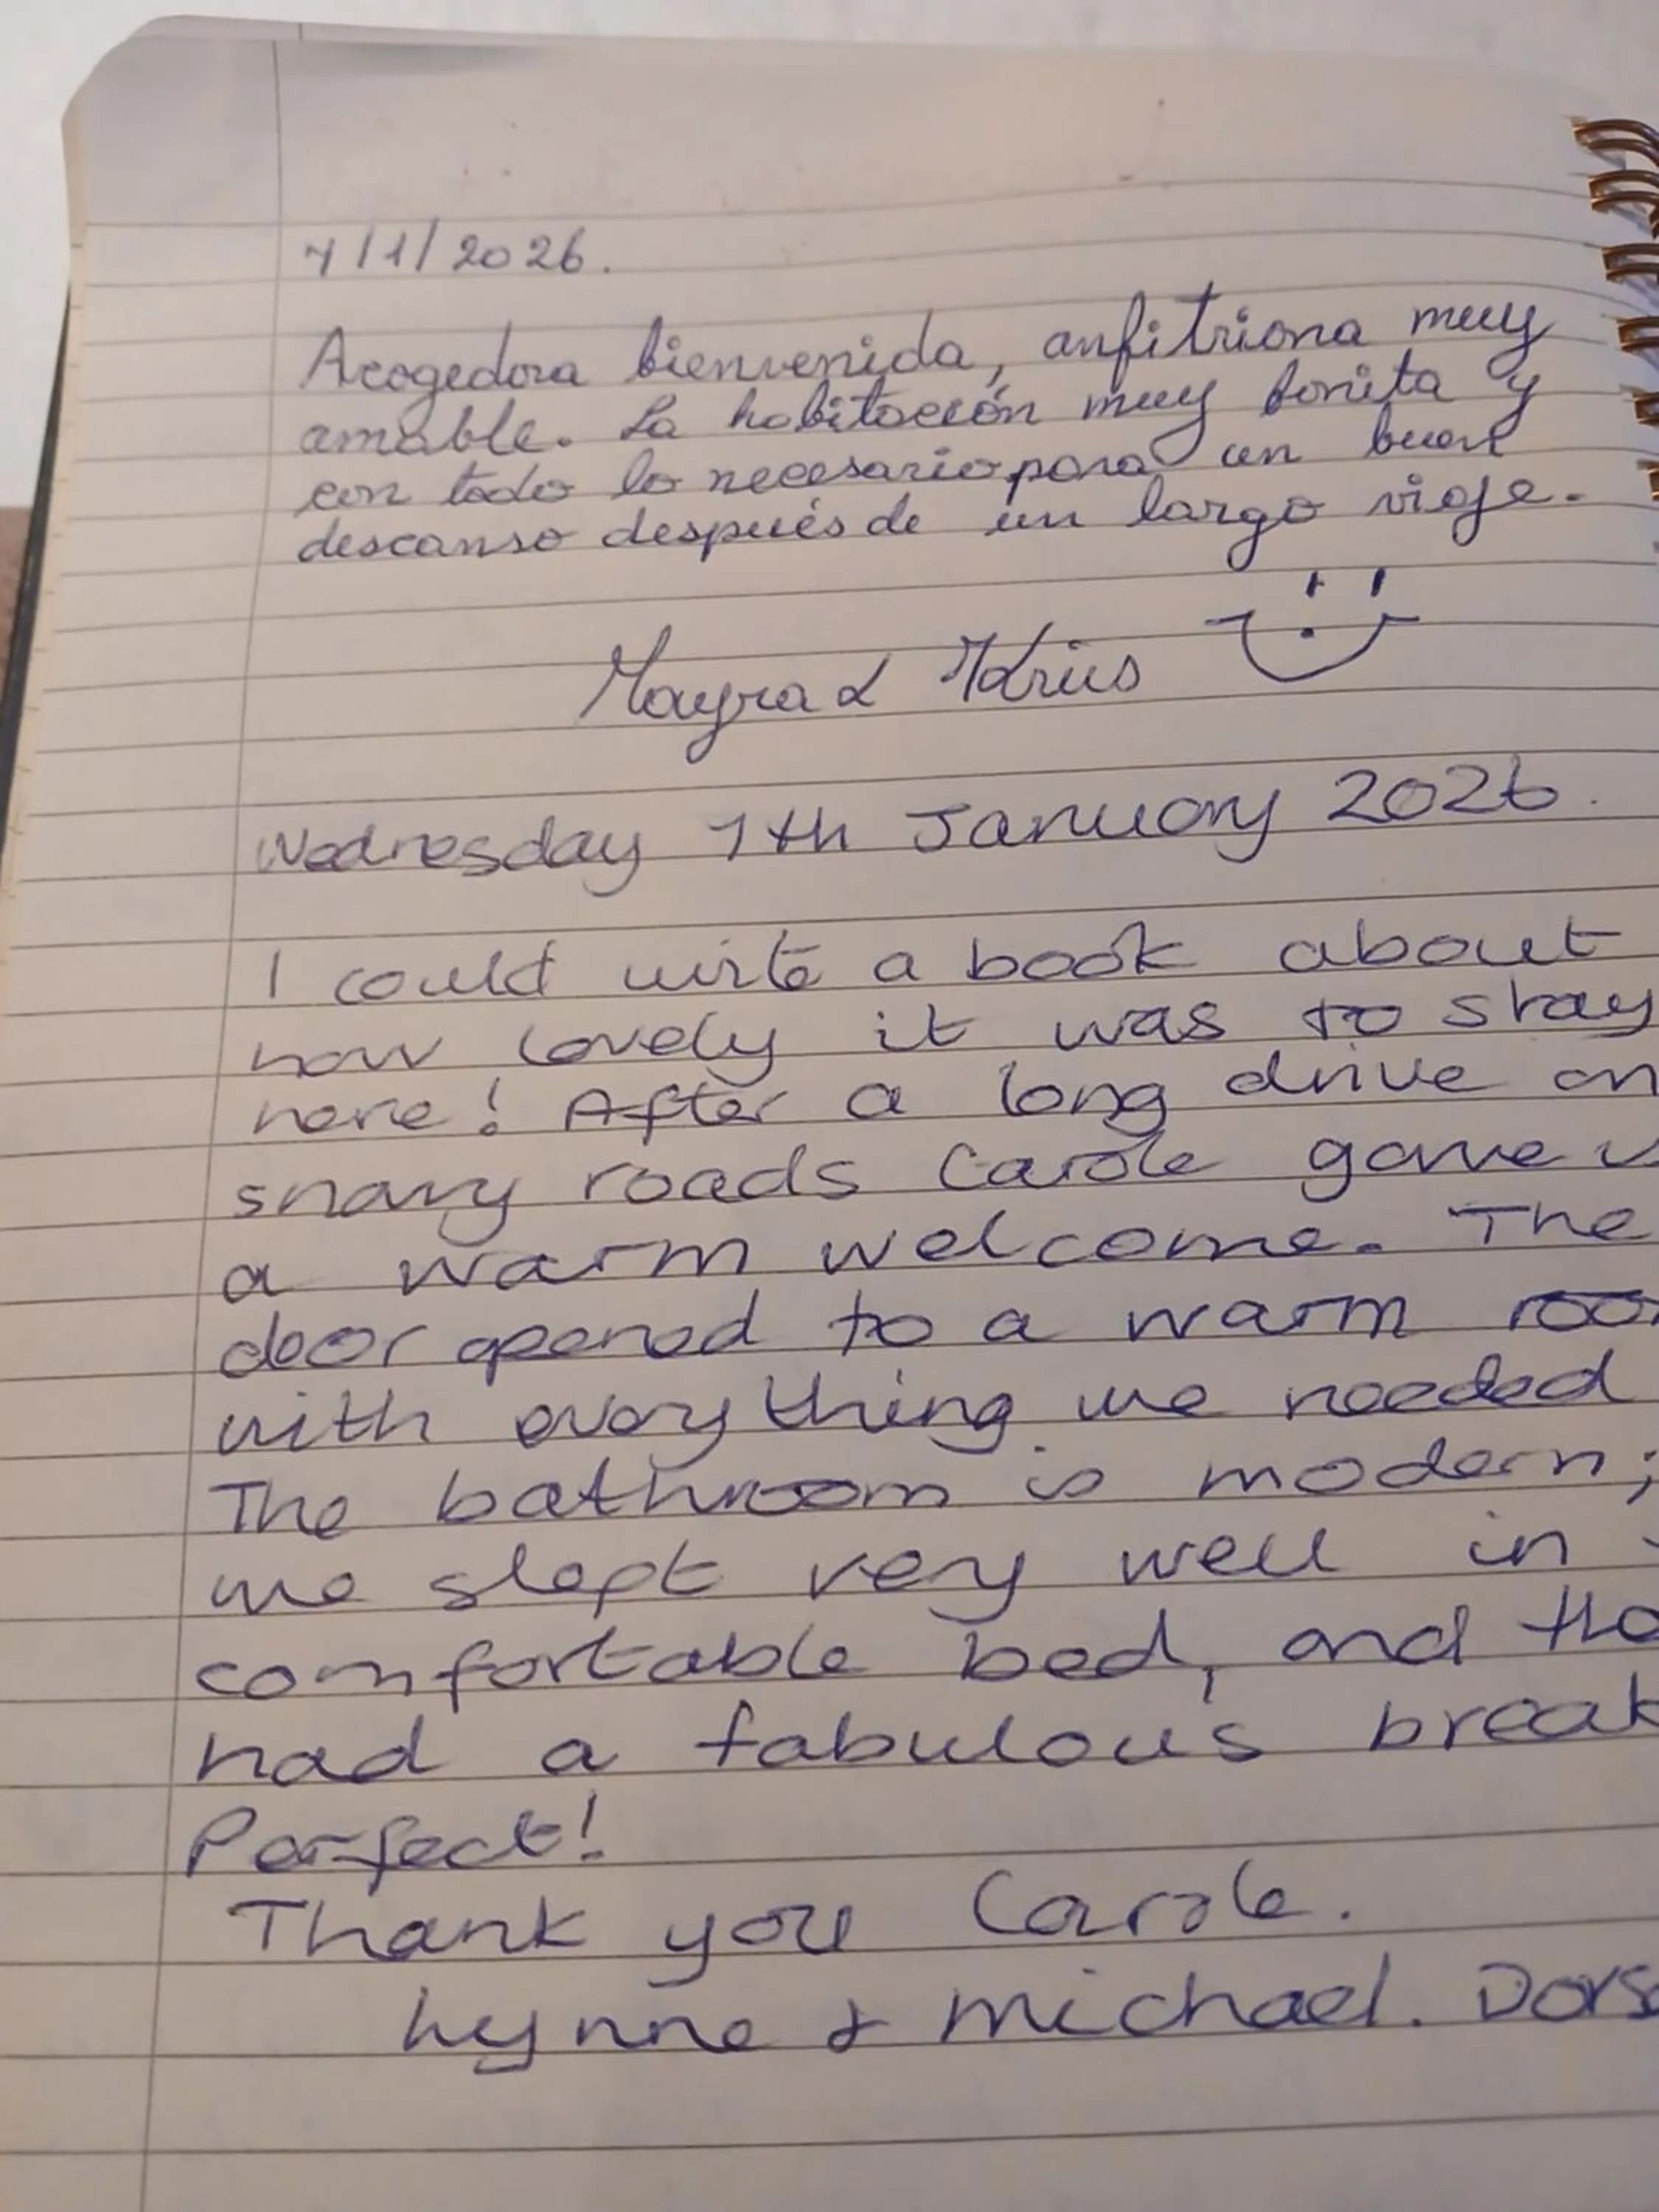 7/1/2026.
Acogedora bienvenida, anfitriona muy
amable. La habitación muy bonita y
con todo lo necesario para un buen
descanso después de un largo viaje.
Mayra &
Wednesday 7th January 2026.
I could write a book about
how lovely it was to stay
here! After a long drive on
snowy roads Carole gave
a warm welcome. The
door opened to a warm
with everything we needed
The bathroom is modern;
we slept very well in
comfortable bed, and
had a fabulous break
Perfect!
Thank you Carole.
Lynne & Michael.